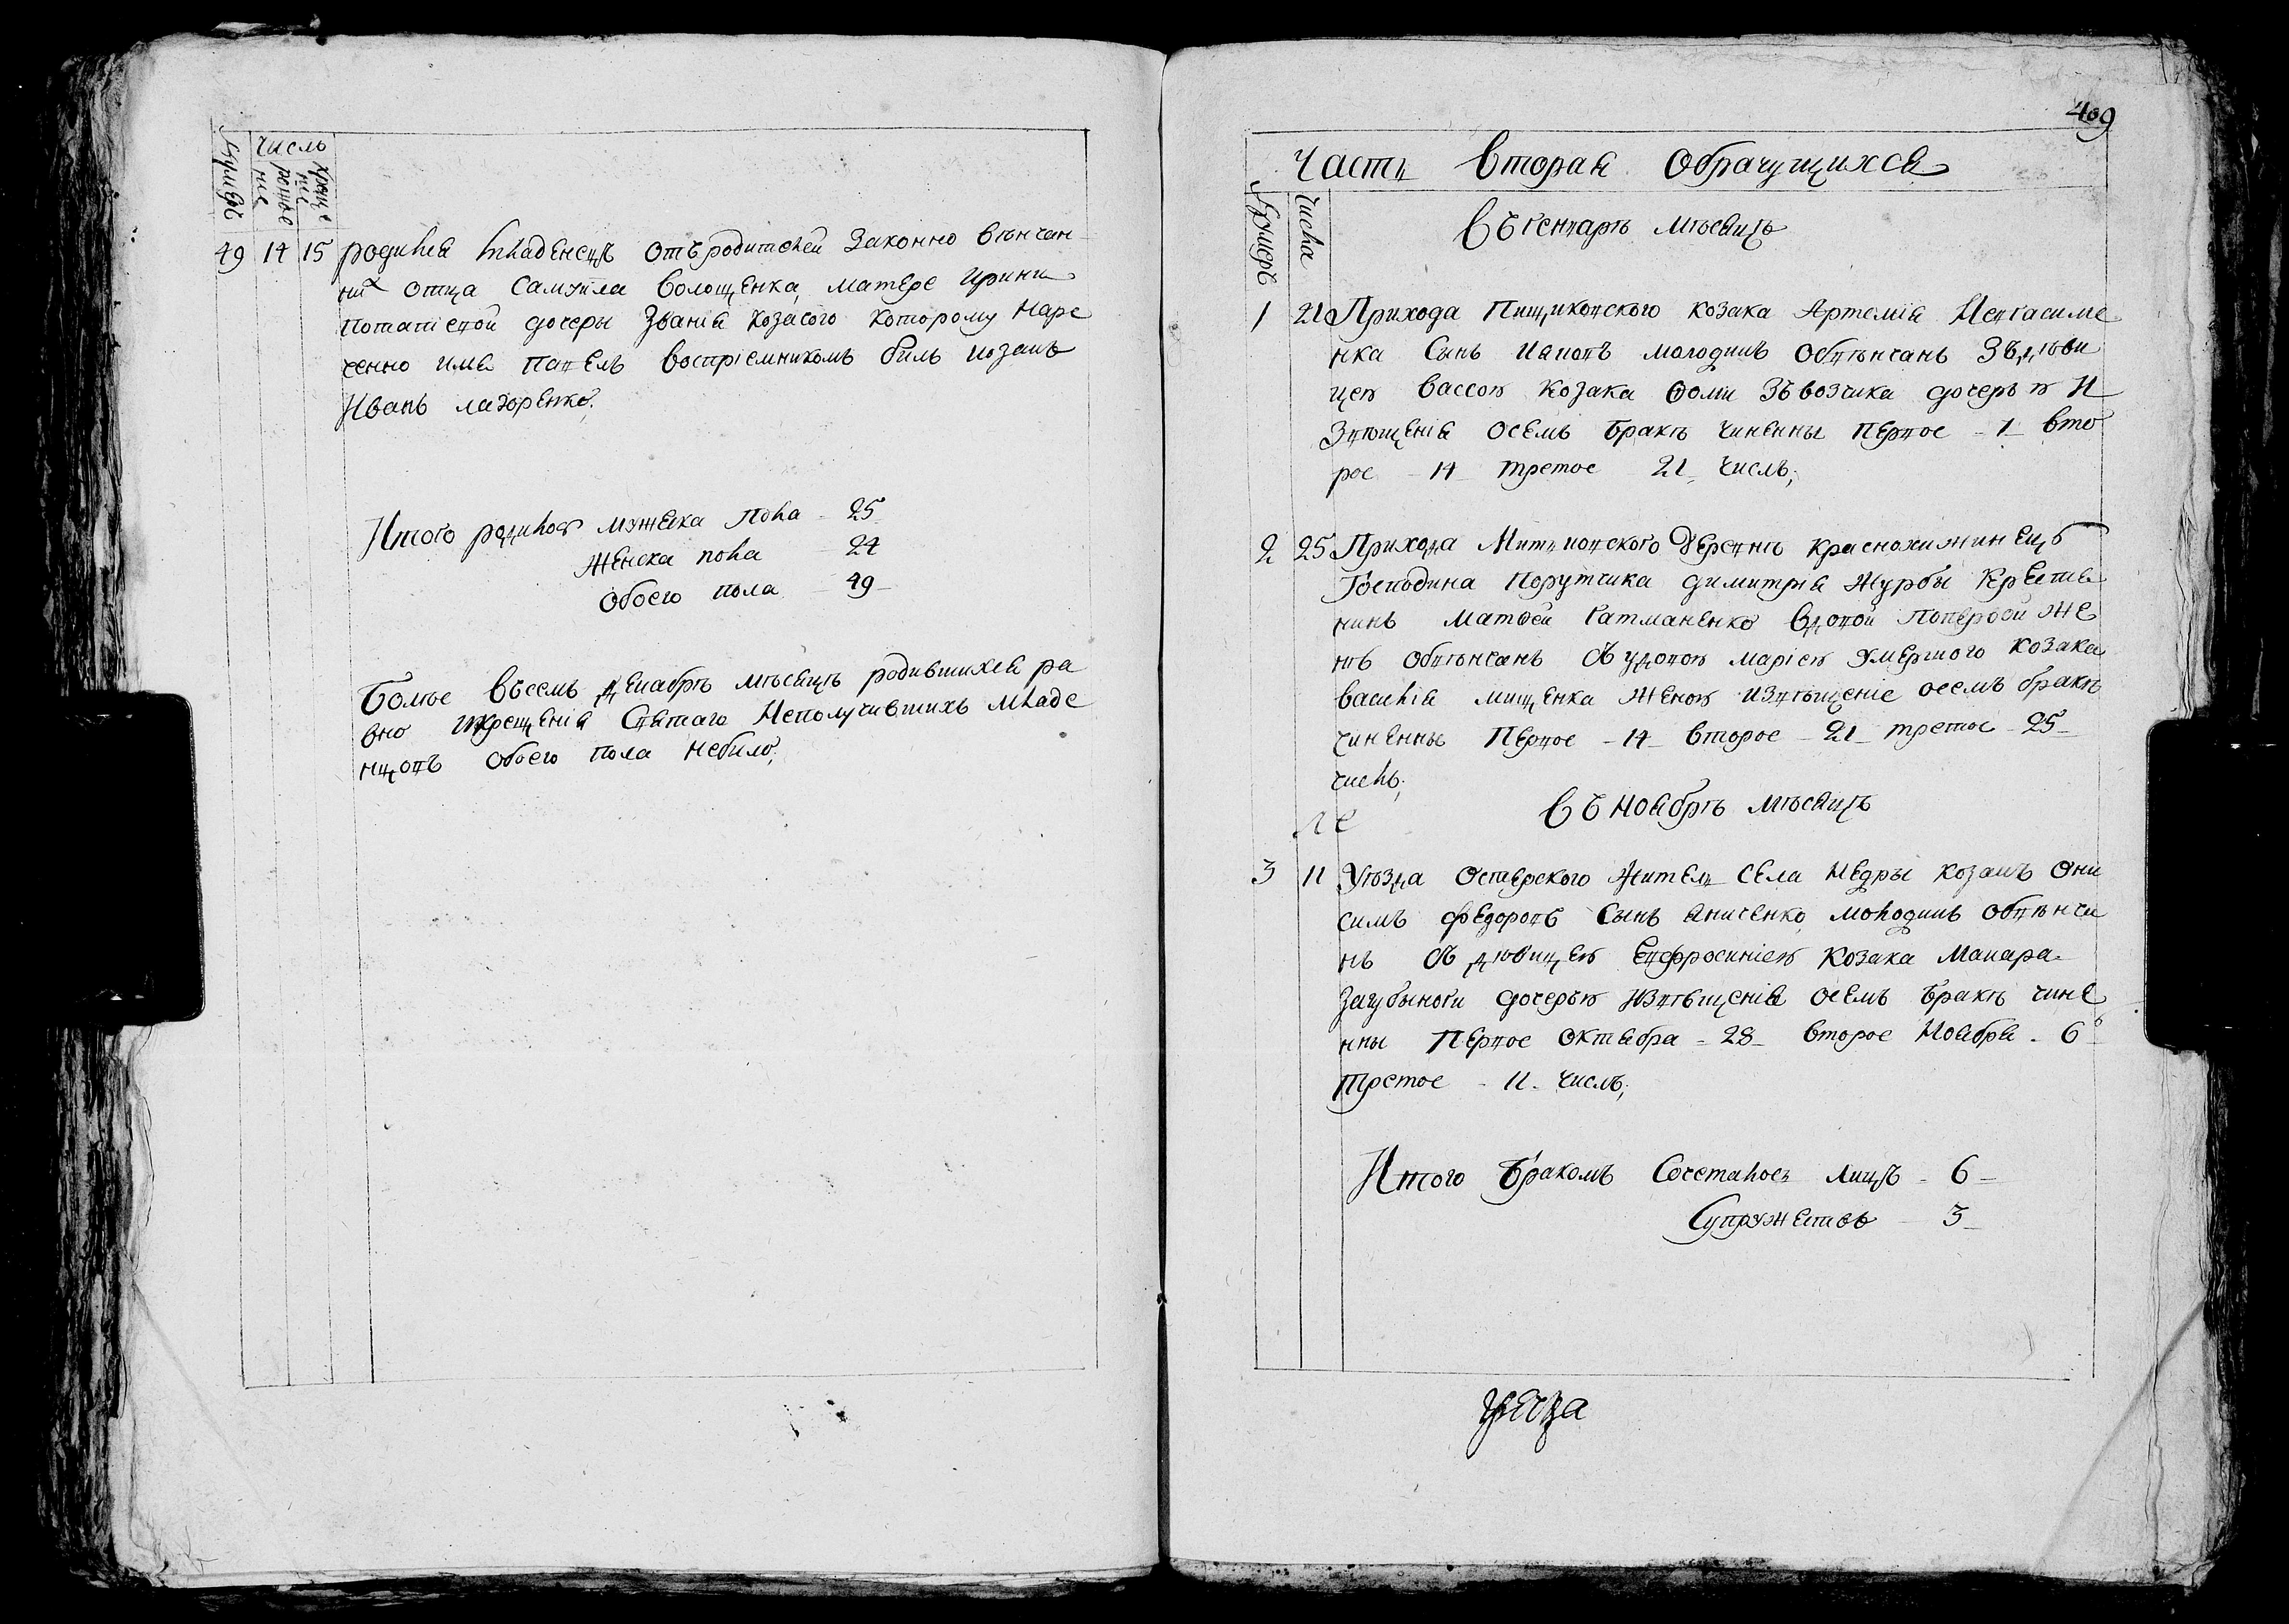 Нумеръ
Числъ
рожде
ние
креще
ние
49 14 15 родился младенецъ отъ родителей законно вѣнчан-
них отца Самуила Волощенка, матере Ирини
Потапіевой дочеры званія козачого которому наре
ченно имя Павелъ воспріемникомъ билъ козакъ
Иванъ Лазоренко.
Итого родилось мужеска пола - 25
женска пола - 24
обоего пола - 49 -
Болѣе въ семъ декабрѣ мѣсяцѣ родившихся ра
вно и крещенія святаго неполучившихъ младе
нцовъ обоего пола небило,
409
Часть вторая обрачущихся
Нумеръ
Числа
Въ генварѣ мѣсяцѣ
1 21 Прихода Пищиковского козака Артемія
нка синъ Иаковъ молодикъ обвѣнчанъ зъ дѣви
цею Вассою козака Фоми Зѣвозчика дочерѣю И
звѣщенія о семъ бракѣ чиненны первое - 1 - вто
рое - 14 - третое 21 числъ;
2 25 Прихода деревнѣ
Господина порутчика Димитрія Журбы крестя
нинъ Матѳей Гатманенко вдовой поперво́й же
нѣ обвѣнчанъ съ удовою Маріею умершого козака
Василія Мищенка женою извѣщеніе о семъ бракѣ
чиненные первое - 14 - второе - 21 - третое - 25 -
числъ;
Въ ноябрѣ мѣсяцѣ
3 11 Уѣзда Остерского жителъ села Недры козакъ Они
симъ Федоровъ сынъ Яниченко, молодикъ обвѣнча
нъ съ дѣвицею Евфросиніею козака Макара
Загубыноги дочерѣю извѣщенія о семъ бракѣ чине
нны первое октября - 28 - второе ноября - 6 -
третое - 11 - числъ;
Итого бракомъ сочеталось лицъ - 6 -
Супружествъ - 3 -